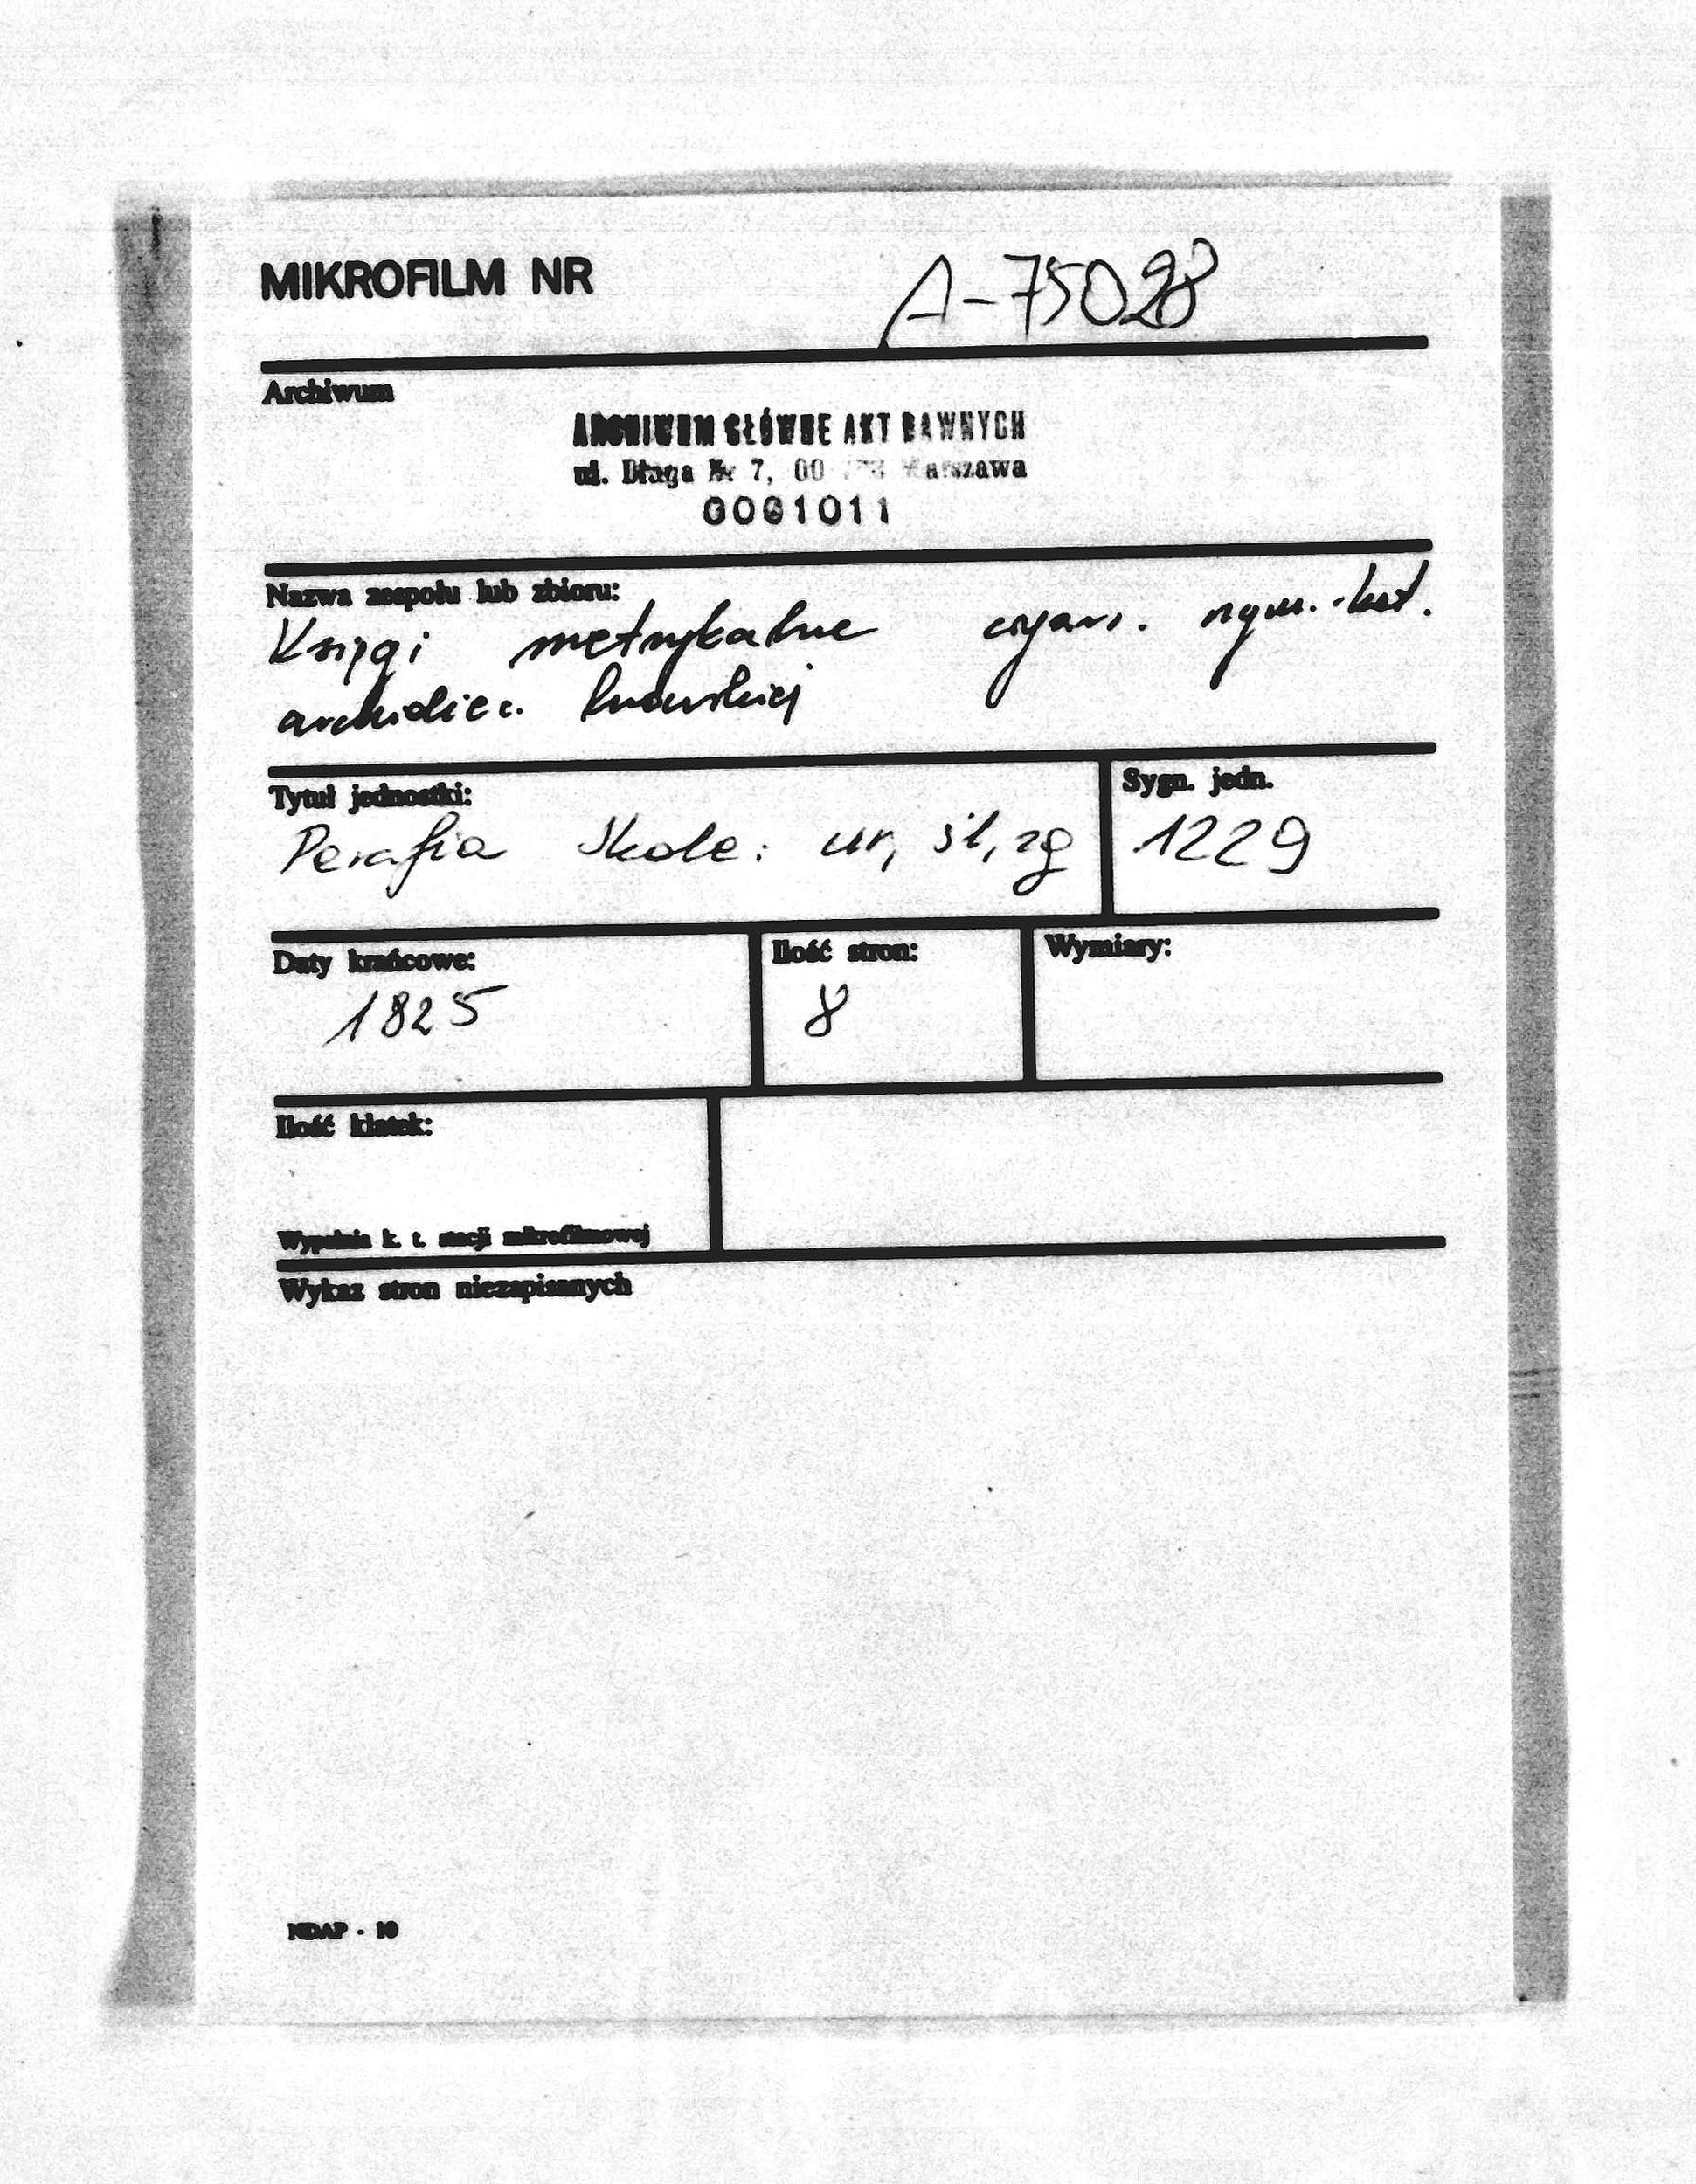 MIKROFILM NR A-75028
Archiwum
ARCHIWUM GŁÓWNE AKT DAWNYCH
ul. Długa Nr 7, 00 Warszawa
0001011
Nazwa zespołu lub zbioru:
Księgi metrykalne wyzn. rzym.-kat.
archidiec. lwowskiej
Tytuł jednostki: Sygn. jedn.
Parafia Skole: ur, śl, zg 1229
Daty krańcowe: Ilość stron: Wymiary:
1825 8
Ilość klatek:
Wypełnia k. t. stacji mikrofilmowej
Wykaz stron niezapisanych
NDAP - 10